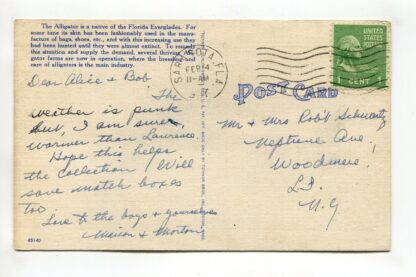 The Alligator is a native of the Florida Everglades. For
some time its skin has been fashionably used in the manu-
facture of bags, shoes, etc., and with this increasing use they
had been hunted until they were almost extinct. To remedy
this situation and supply the demand, several thriving alli-
gator farms are now in operation, where the breeding and
care of alligators is the main industry.
Dear Alice & Bob
The
weather is punk
but, I am sure,
warmer than Lawrence.
Hope this helps
the collection. Will
save match boxes
too.
Love to the boys & yourselves
Marion & Morton
45140
SARASOTA, FLA.
FEB 14
11-AM
POST CARD
UNITED STATES
POSTAGE
1 CENT 1
Mr & Mrs Rob't Schwartz
Neptune Ave.,
Woodmere,
L.I.
N.Y.